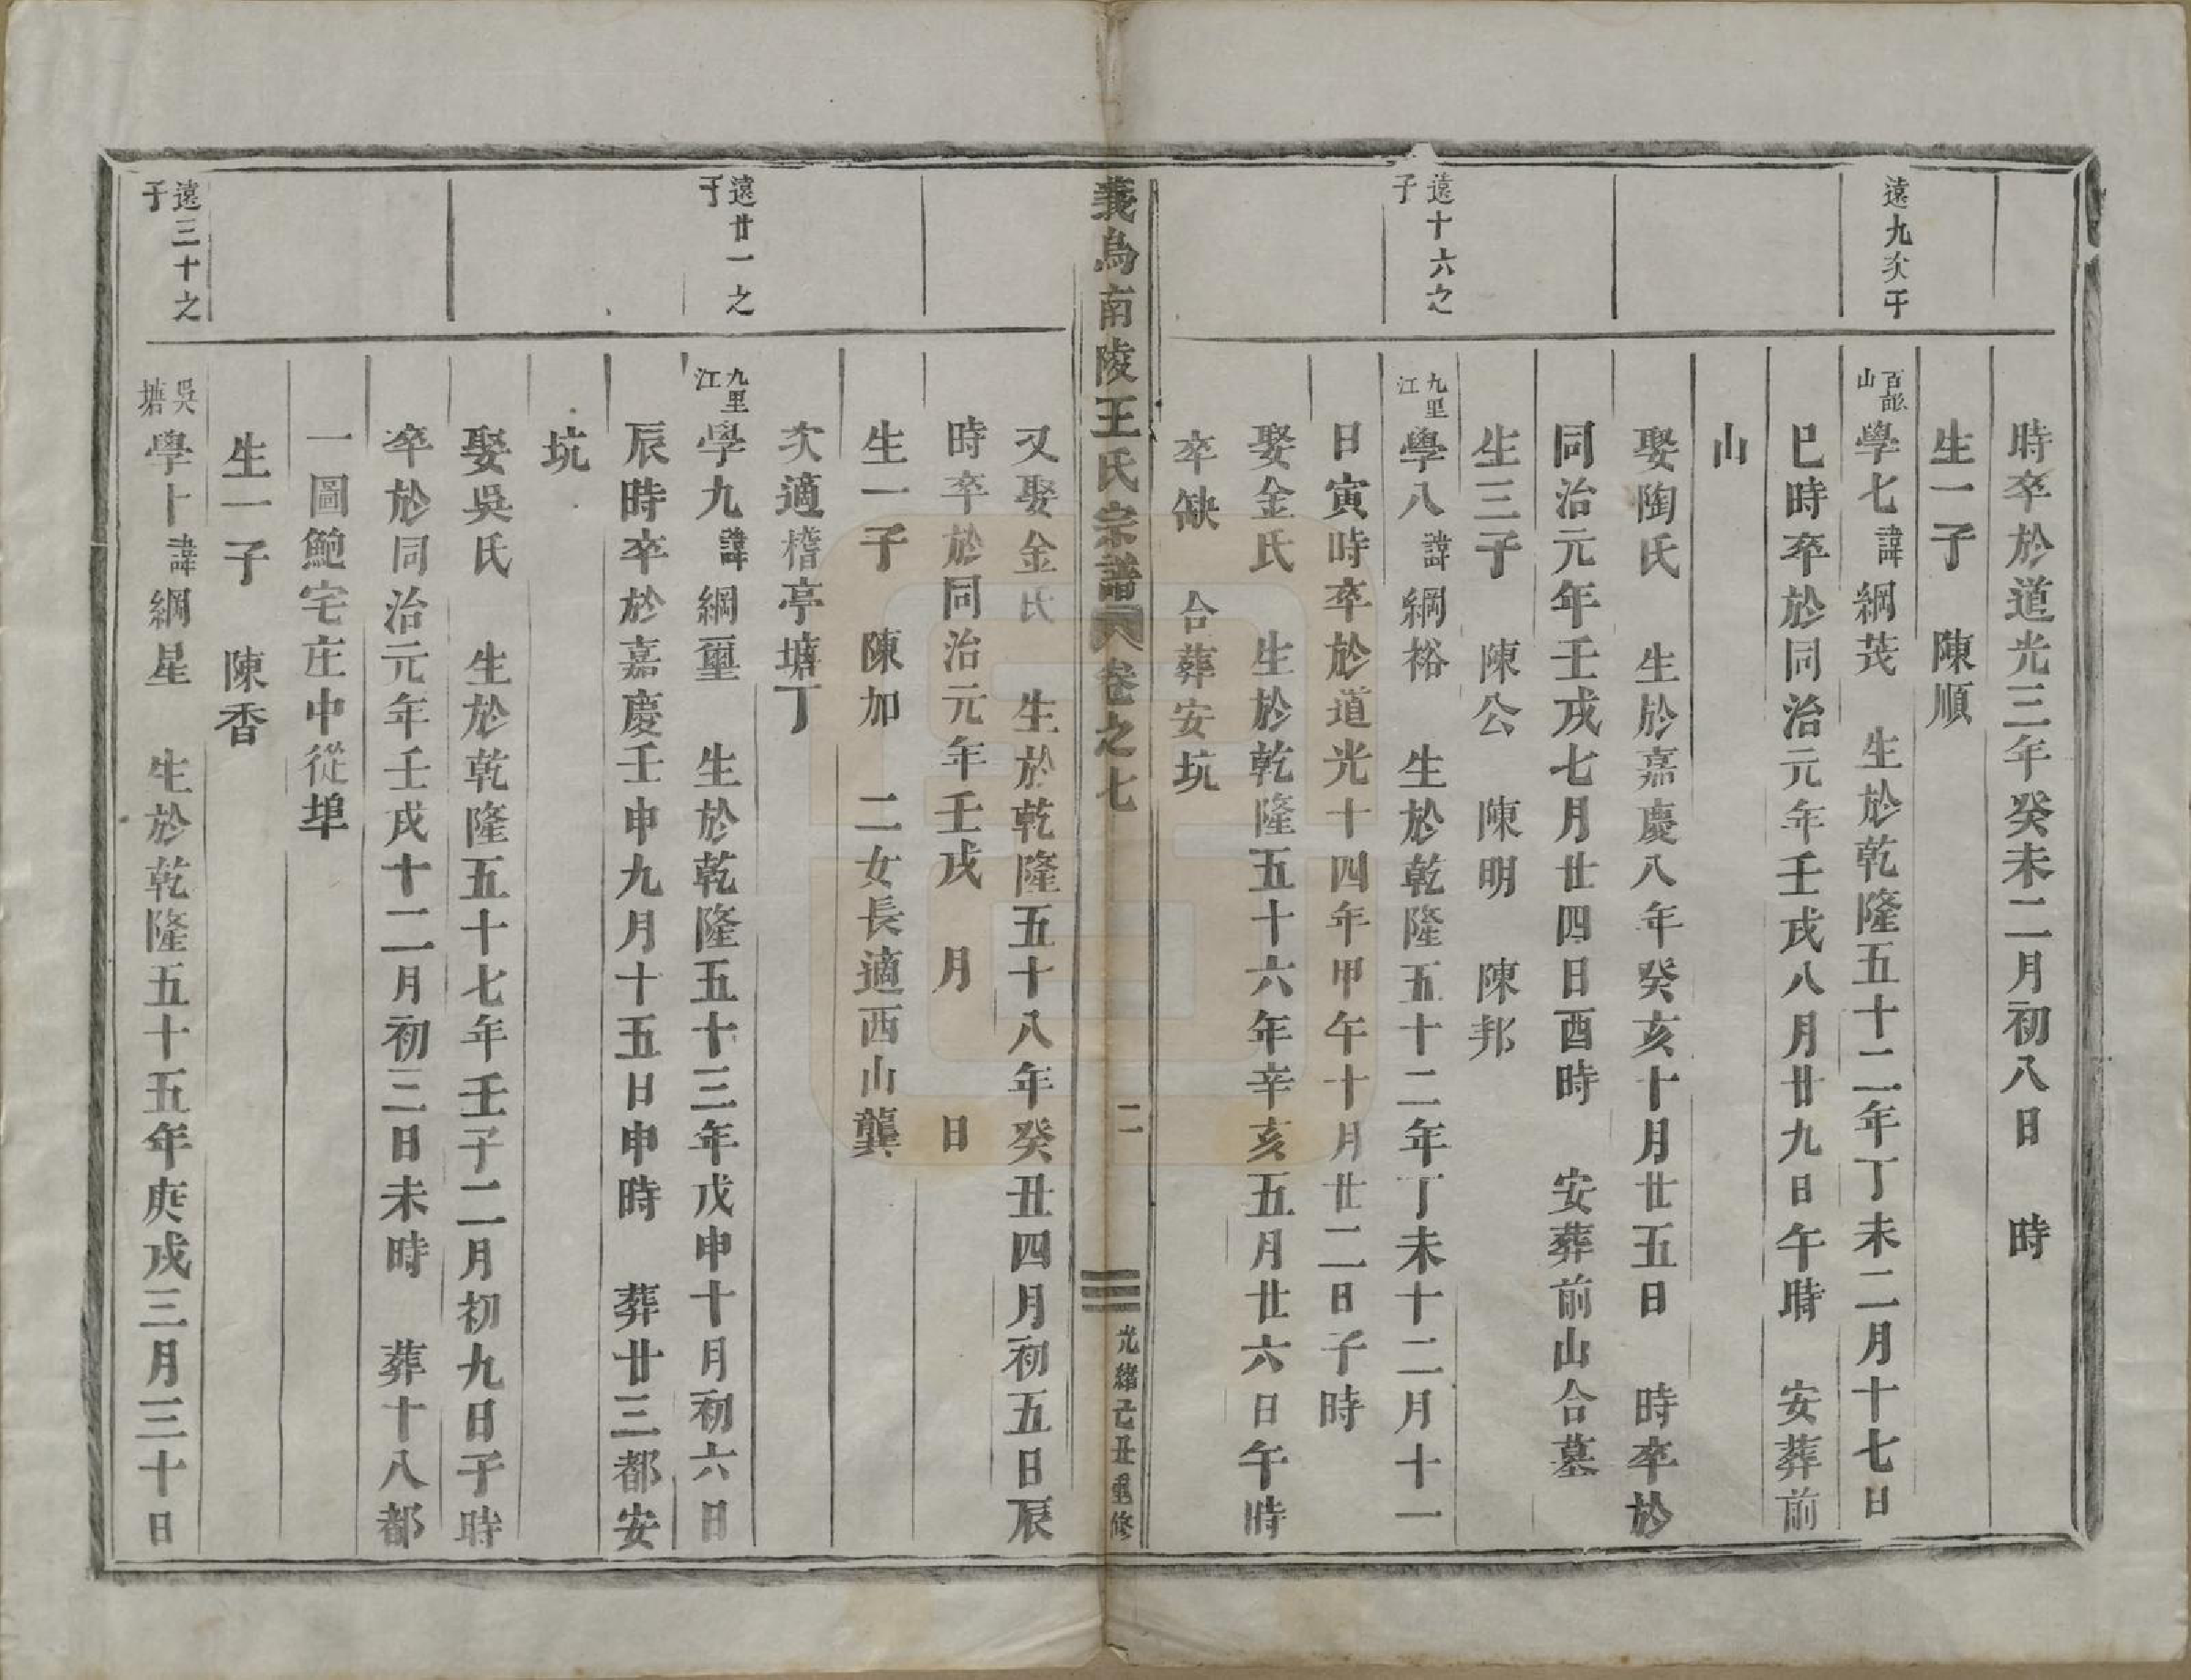 時卒於道光三年癸未二月初八日　時
生一子　陳順
遠九次子
百部山
學七諱綱茂　生於乾隆五十二年丁未二月十七日
巳時卒於同治元年壬戌八月廿九日午時　安葬前
山
娶陶氏　生於嘉慶八年癸亥十月廿五日　時卒於
同治元年壬戌七月廿四日酉時　安葬前山合墓
生三子　陳公　陳明　陳邦
遠十六之子
九里江
學八諱綱裕　生於乾隆五十二年丁未十二月十一
日寅時卒於道光十四年甲午十月廿二日子時
娶金氏　生於乾隆五十六年辛亥五月廿六日午時
卒缺　合葬安坑
義烏南陵王氏宗譜　卷之七　二　光緒己丑重修
又娶金氏　生於乾隆五十八年癸丑四月初五日辰
時卒於同治元年壬戌　月　日
生一子　陳加　二女長適西山龔
次適稽亭塘丁
遠廿一之子
九里江
學九諱綱璽　生於乾隆五十三年戊申十月初六日
辰時卒於嘉慶壬申九月十五日申時　葬廿三都安
坑
娶吳氏　生於乾隆五十七年壬子二月初九日子時
卒於同治元年壬戌十二月初三日未時　葬十八都
一圖鮑宅庄中從埠
生一子　陳香
遠三十之子
吳塘
學十諱綱星　生於乾隆五十五年庚戌三月三十日